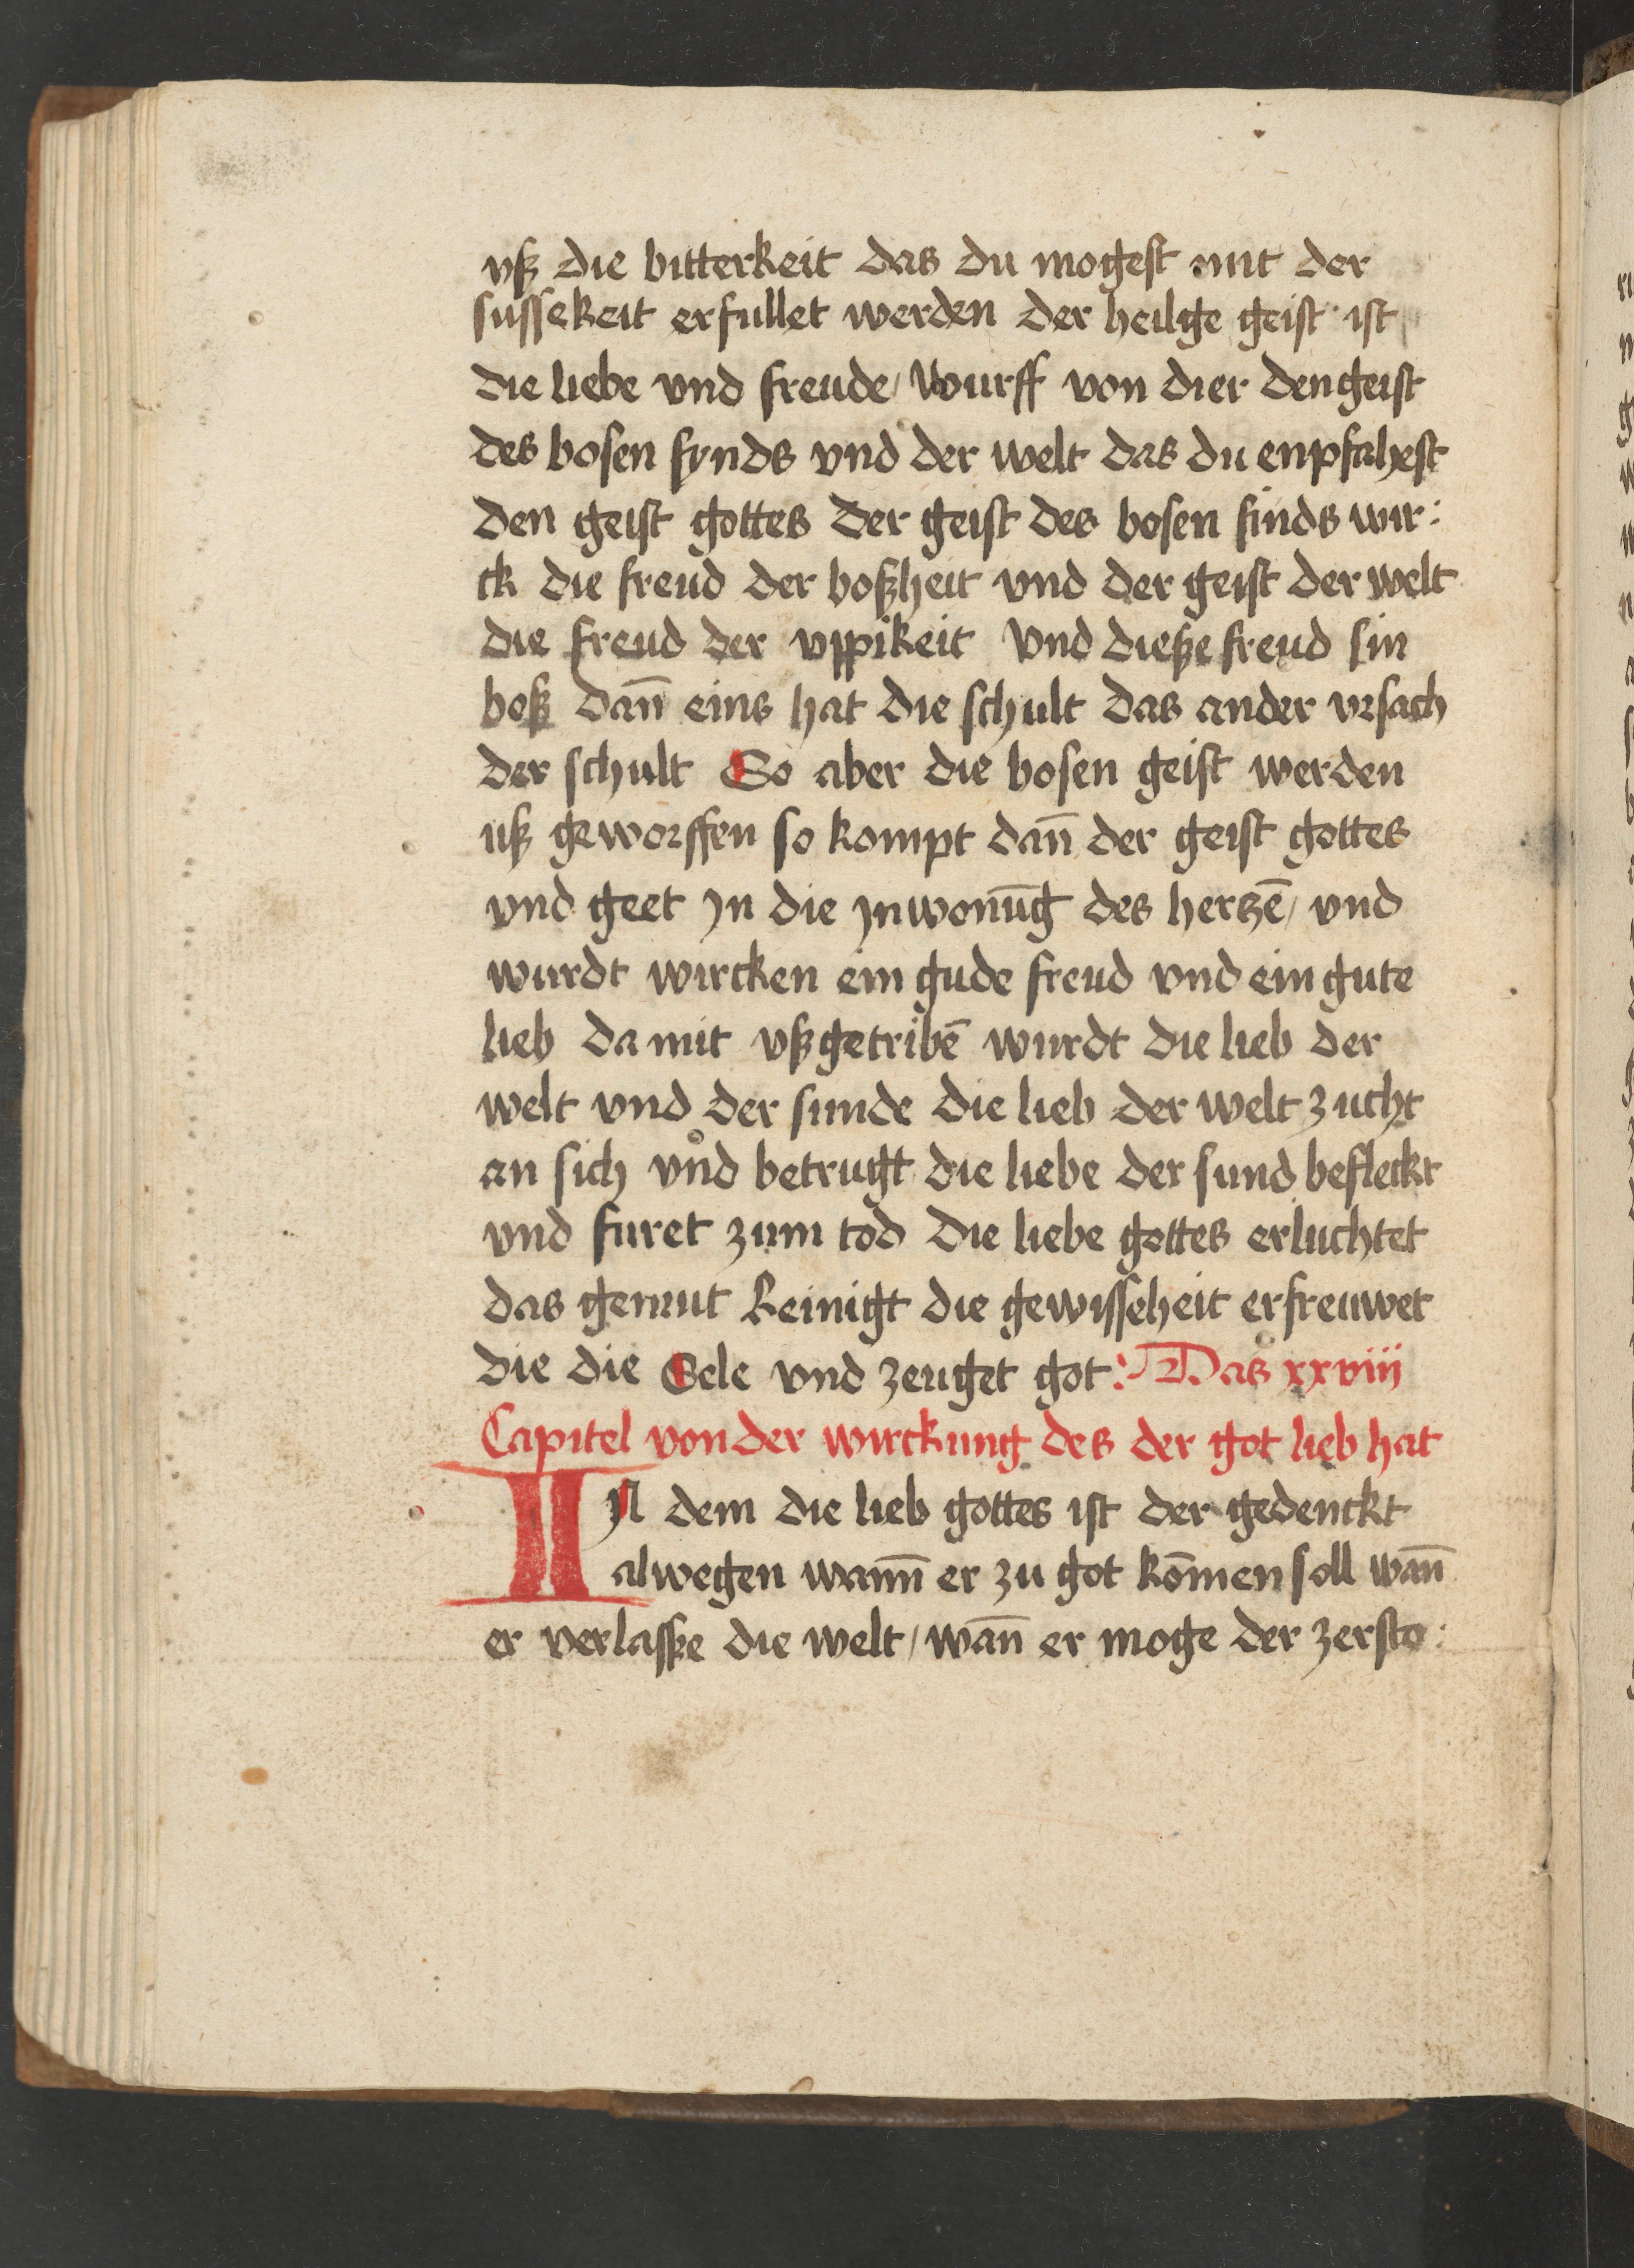 vß die bitterkeit das du mogest mit der
sussekeit erfullet werden der heilge geist ist
die liebe vnd freude / Wurff von dier den geist
des bosen fynds vnd der welt das du enpfahest
den geist gottes der geist des bosen finds wir :
ck die freud der boßheit vnd der geist der welt
die freud der vppikeit Vnd dieße freud sin
beß dan̄ eins hat die schult das ander vrsach
der schult So aber die bosen geist werden
uß geworffen so kompt dan̄ der geist gottes
vnd geet jn die jnwonūg des hertzē / vnd
wurdt wircken ein gude freud vnd ein gute
lieb da mit vßgetribē wurdt die lieb der
welt vnd der sunde die lieb der welt zucht
an sich vnd betrugt die liebe der sund befleckt
vnd furet zum tod die liebe gottes erluchtet
das gemut Reinigt die gewisseheit erfreuwet
die die Sele vnd zeuget got : Das xxviij
Capitel von der wirckung des der got lieb hat
IN dem die lieb gottes ist der gedenckt
alwegen wann̄ er zu got kōmen soll wan̄
er verlasße die welt / wan̄ er moge der zersto :